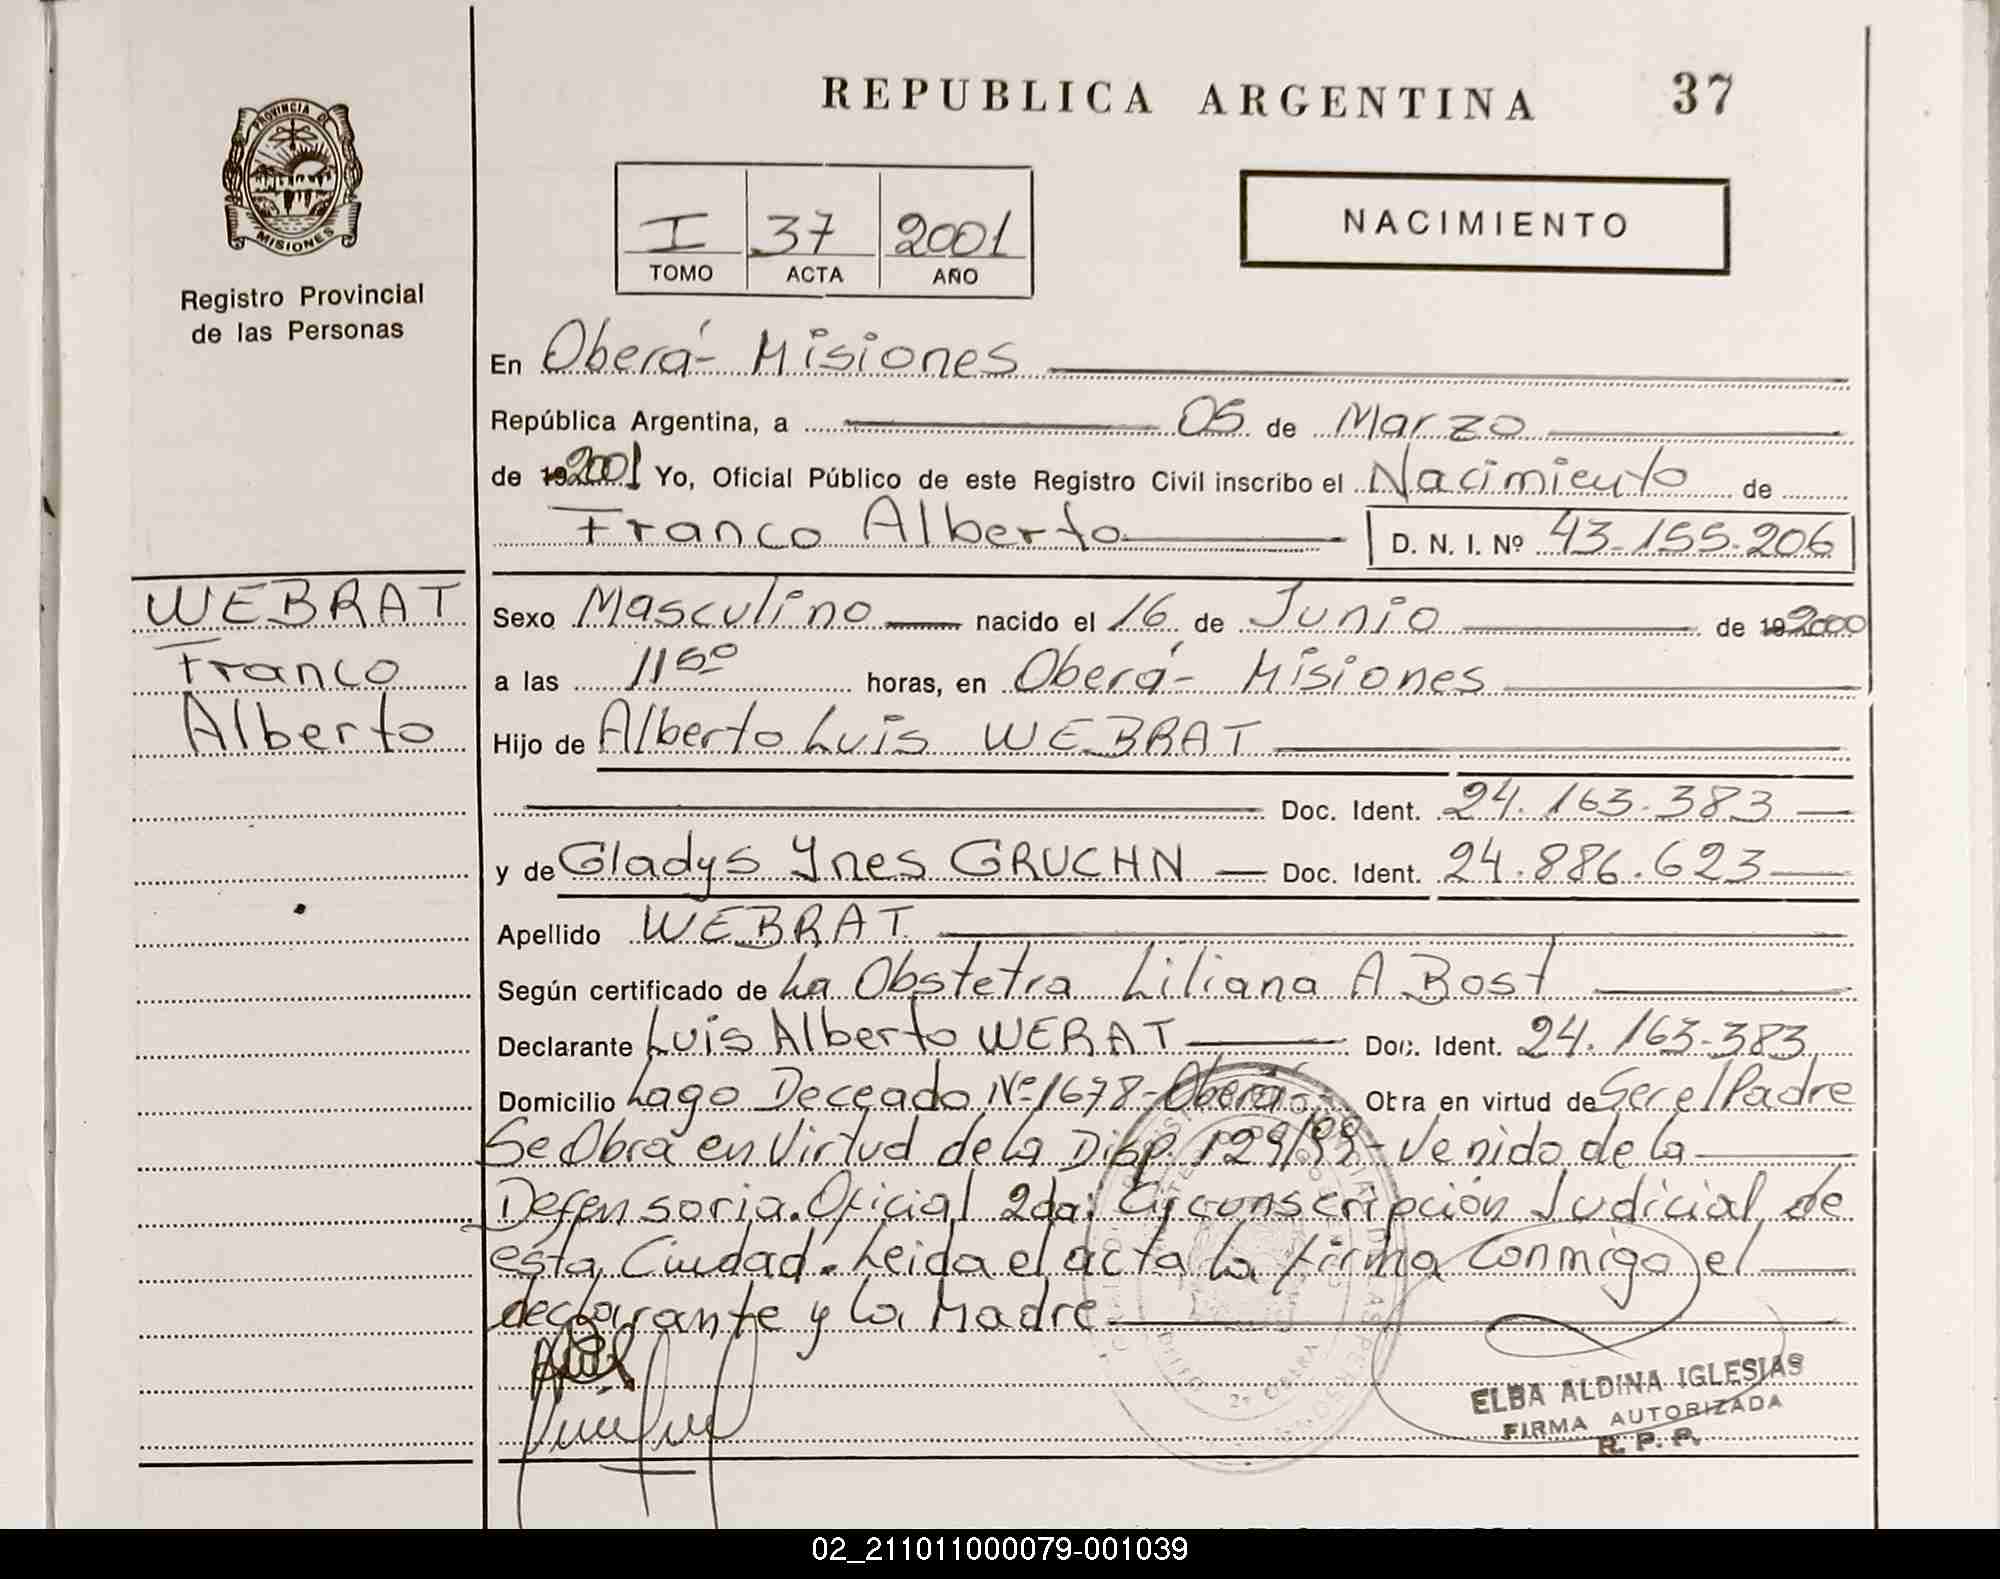 REPUBLICA ARGENTINA 37
PROVINCIA DE
MISIONES
Registro Provincial
de las Personas
I 37 2001
TOMO ACTA AÑO
NACIMIENTO
En Oberá - Misiones
República Argentina, a 05 de Marzo
de 19 2001 Yo, Oficial Público de este Registro Civil inscribo el Nacimiento de
Franco Alberto D. N. I. Nº 43.155.206
WEBRAT
Franco
Alberto
Sexo Masculino nacido el 16 de Junio de 19 2000
a las 11 50 horas, en Oberá - Misiones
Hijo de Alberto Luis WEBRAT
Doc. Ident. 24.163.383
y de Gladys Ynes GRUCHN Doc. Ident. 24.886.623
Apellido WEBRAT
Según certificado de La Obstetra Liliana A Bost
Declarante Luis Alberto WERAT Doc. Ident. 24.163.383
Domicilio Lago Deceado Nº 1678 - Oberá - Obra en virtud de Ser el Padre
Se Obra en Virtud de la Disp. 129/99 - Venido de la
Defensoria Oficial 2da. Circonscripción Judicial de
esta Ciudad. Leida el acta la firma conmigo el
declarante y la Madre
ELBA ALDINA IGLESIAS
FIRMA AUTORIZADA
R. P. P.
02_211011000079-001039